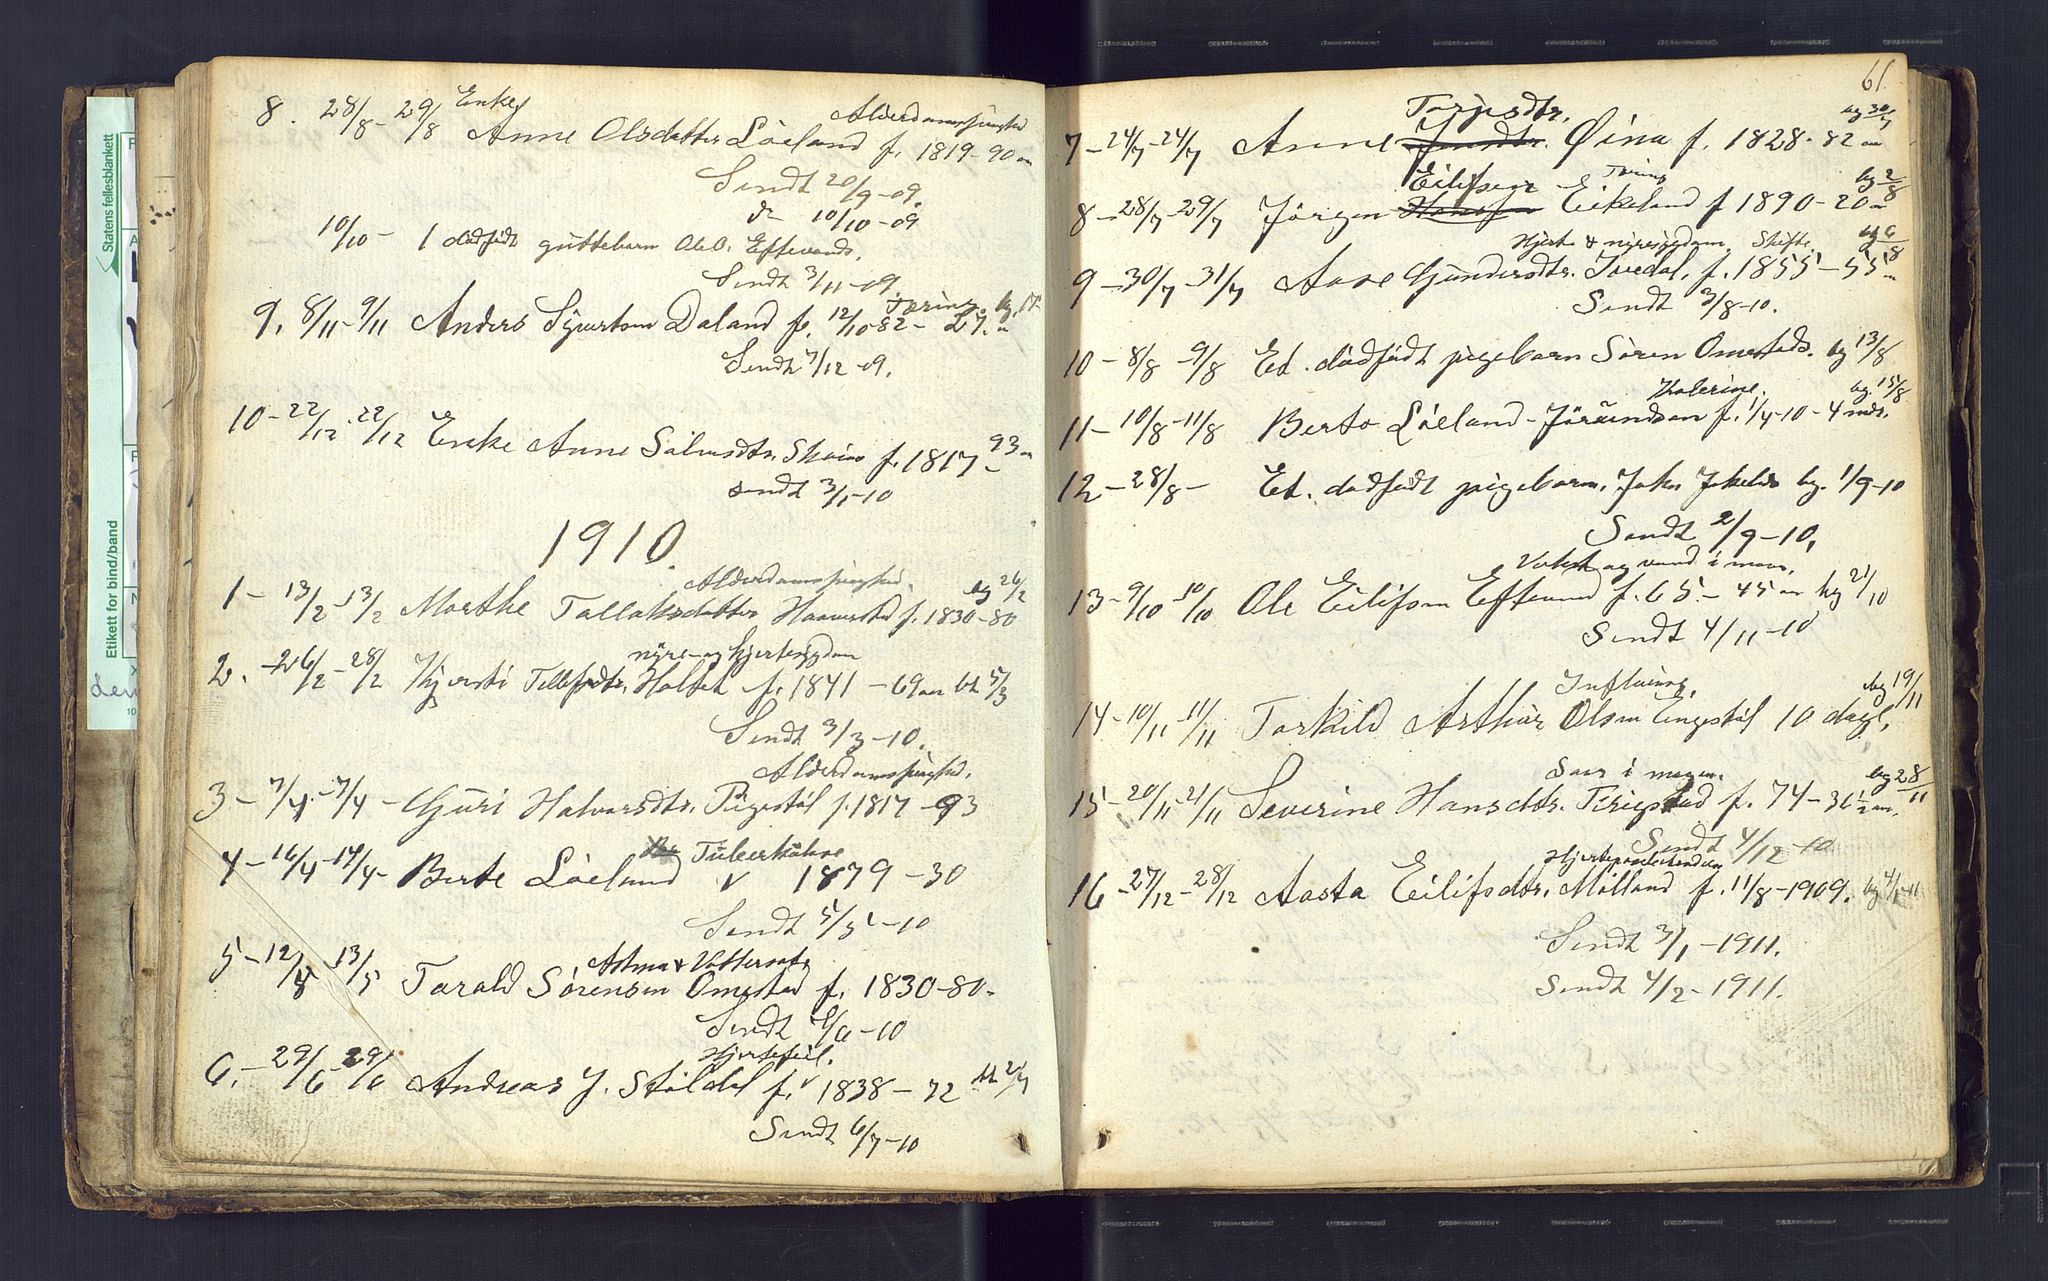 8. 28/8 - 29/8 Enke Alderdomssvaghed
Anne Olsdatter Löeland f. 1819 - 90 aar
Sendt 20/9-09.
do 10/10-09
10/10 - 1 dødfødt guttebarn Ole O. Eftevands.
Sendt 3/11-09.
Tæring. bg.
9. 8/11 - 9/11 Anders Syvertsen Daland f. 12/10 82 - 27.
Sendt 4/12-09.
10 - 22/12 - 22/12 Enke Anne f. 1817 - 93
sendt 3/1-10
1910.
Alderdomssvaghed. bg 26/2
1 - 13/2 - 13/2 Marthe Tallaksdatter f. 1830 - 80
nyre- og hjertesygdom
2. - 26/2 - 28/2 Kjersti Tellefsdtr. Holset f. 1841 - 69 aar 5/3
Sendt 3/3-10.
Alderdomssvaghed.
3 - 7/4 - 7/4 - Guri Halvorsdtr. f. 1817 - 93
Tuberkulose
4 - 16/4 - 17/4 - Berte Löeland v 1879 - 30
Sendt 5/5-10
Astma & Vattersot
5 - 12/5 13/5 Tarald Sörensen Omestad f. 1830-80.
Sendt 4/6-10
Hjertefeil.
6. - 29/6 - 29/6 Andreas J. Støldal f. v 1838 - 72
Sendt 6/7-10
Etikett for bind/band
Statens fellesblankett
61.
Torjusdtr. bg 30/7
7 - 24/7 - 24/7 Anne Øina f. 1828 - 82
Eilifsen Tæring bg 2/8
8 - 28/7 - 29/7 Jörgen Hansen Eikeland f 1890 - 20
Hjerte & nyresygdom. Skifte. bg 6/8
9 - 30/7 - 31/7 Aase Gundersdtr. Tvedal. f. 1855 - 55
Sendt 3/8-10.
10 - 8/8 - 9/8 Et. dødfødt pigebarn Sören Omestads. bg 13/8
Kolerine. bg. 15/8
11 - 10/8 - 11/8 Berto Löeland - Jörundsen f. 1/4-10 - 4 mdr.
12 - 28/8 - Et. dødfødt pigebarn. bg. 1/9-10
Sendt 2/9-10.
13 - 9/10 10/10 Ole Eilifsen Eftevand f. 65 - 45 bg 21/10
Sendt 4/11-10
bg 19/11
14 - 10/11 - 11/11 Torkild Arthur Olsen Engestöl 10 dage.
Saar i magen. bg 28/11
15 - 20/11 - 21/11 Severine Hansdtr. f. 74 - 36 1/2 aar.
Sendt 4/12-10
16 - 27/12 - 28/12 Aasta Eilifsdtr. Mölland f. 11/8-1909. bg 4/1-11
Sendt 3/1-1911.
Sendt 4/2-1911.